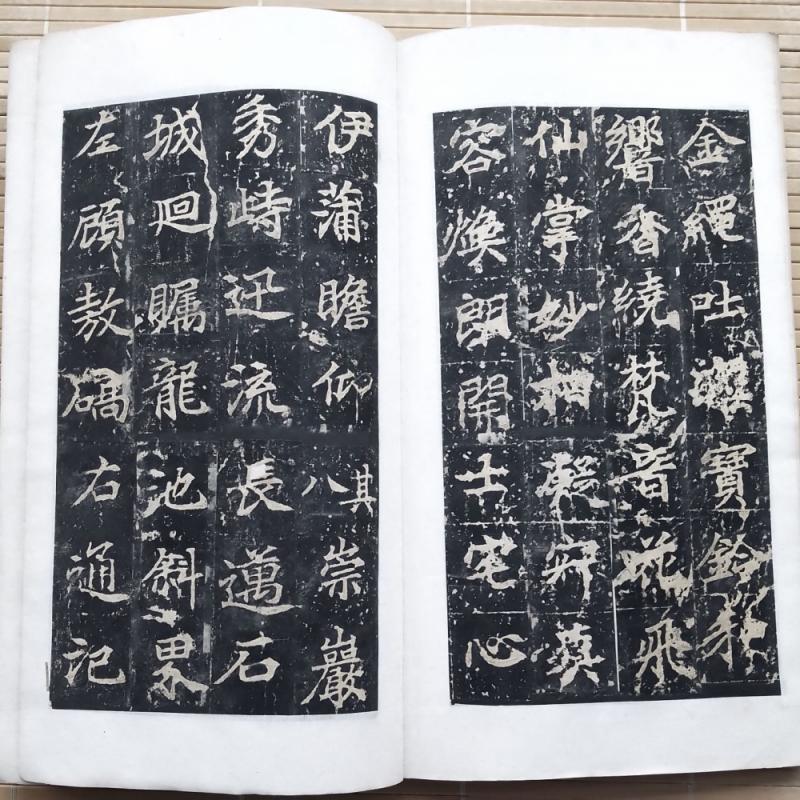 金繩吐寶鈴
響香繞梵音花飛
仙掌妙相
容煥朗開士宅心
伊蒲瞻仰其八崇巖
秀峙迅流長邁石
城迴矚龍池斜界
左顧敖碻右通記